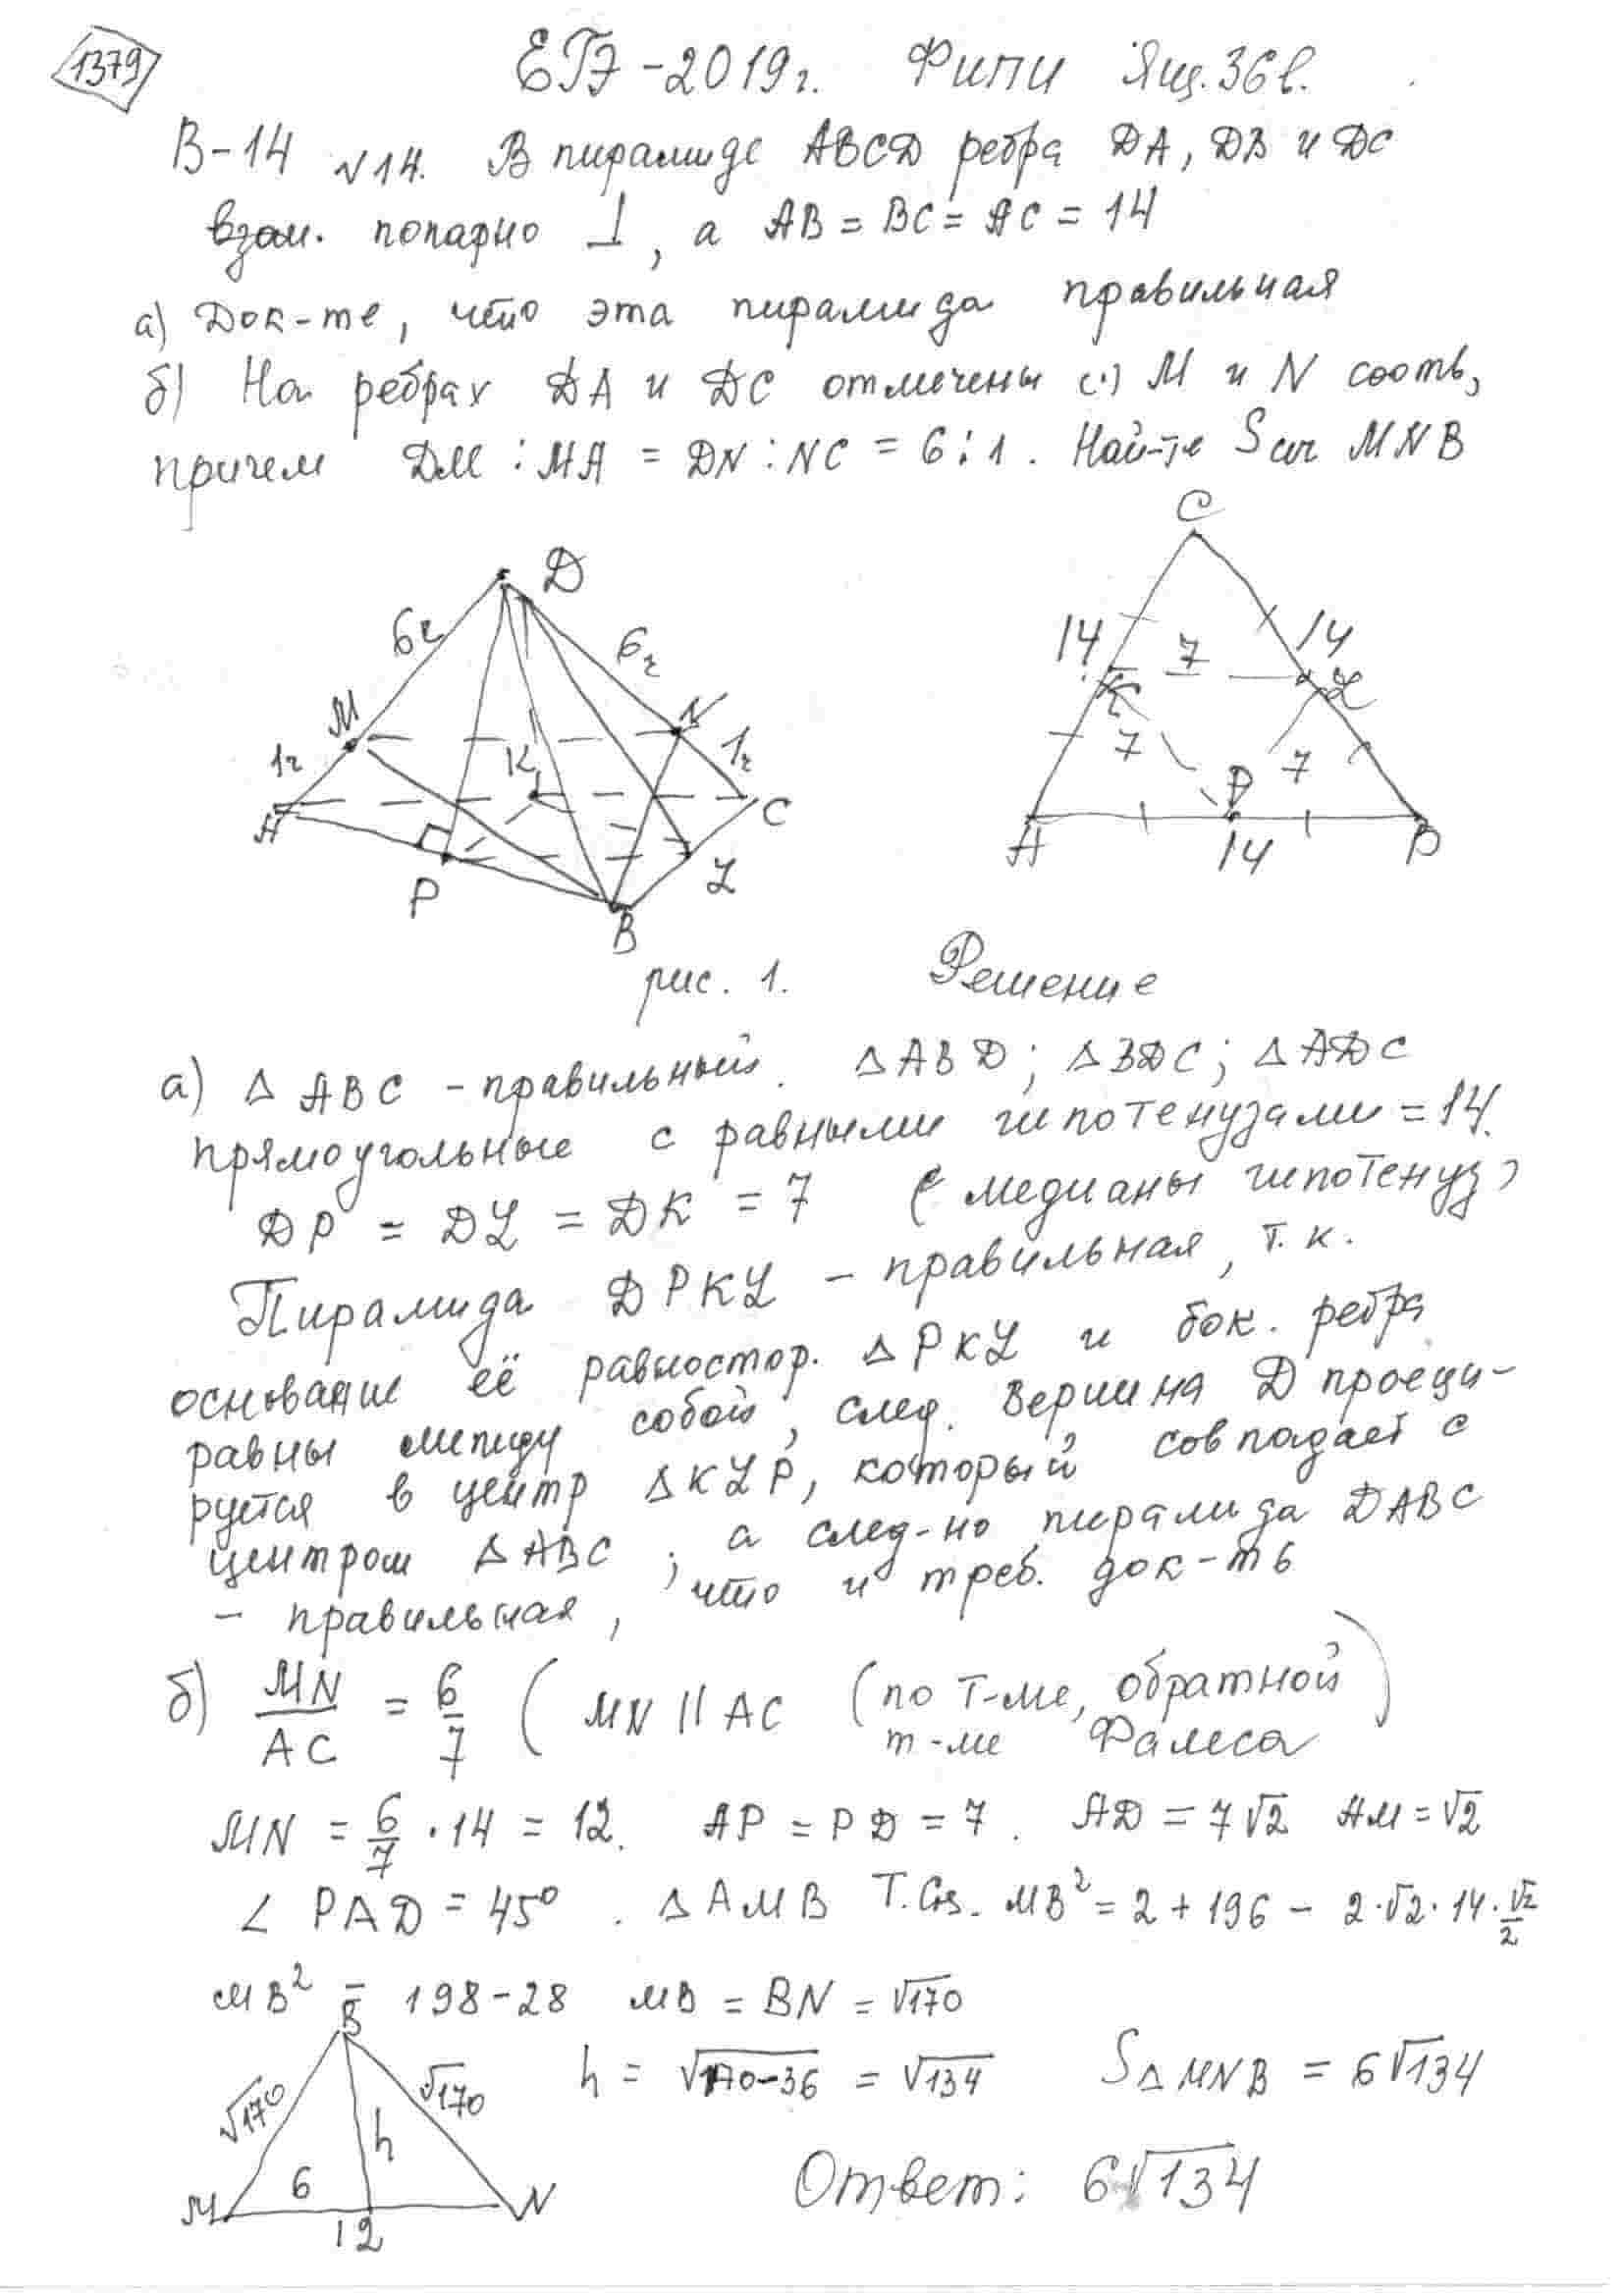 1379
ЕГЭ-2019г. ФИПИ Ящ. 36в.
В-14 №14. В пирамиде ABCD ребра DA, DB и DC
взаи. попарно ⊥, а AB = BC = AC = 14
а) Док-те, что эта пирамида правильная
б) На ребрах DA и DC отмечены (·) M и N соотв,
причем DM : MA = DN : NC = 6 : 1. Най-те Sсеч MNB
D
6x
6x
M
N
1x
1x
K
A
C
P
L
B
C
14
14
7
K
L
7
7
P
A
14
B
рис. 1.
Решение
а) Δ ABC - правильный. Δ ABD; Δ BDC; Δ ADC
прямоугольные с равными гипотенузами = 14.
DP = DL = DK = 7 (медианы гипотенуз)
Пирамида DPKL - правильная, т.к.
основание её равностор. Δ PKL и бок. ребра
равны между собой, след. вершина D проеци-
руется в центр Δ KLP, который совпадает с
центром Δ ABC, а след-но пирамида DABC
- правильная, что и треб. док-ть
б) MN/AC = 6/7 (MN || AC (по т-ме, обратной
т-ме Фалеса)
MN = 6/7 · 14 = 12. AP = PD = 7. AD = 7√2 AM = √2
∠ PAD = 45°. Δ AMB Т.Cos. MB² = 2 + 196 - 2·√2·14·√2/2
MB² = 198-28 MB = BN = √170
B
√170
√170
h
6
M
N
12
h = √170-36 = √134 SΔ MNB = 6√134
Ответ: 6√134